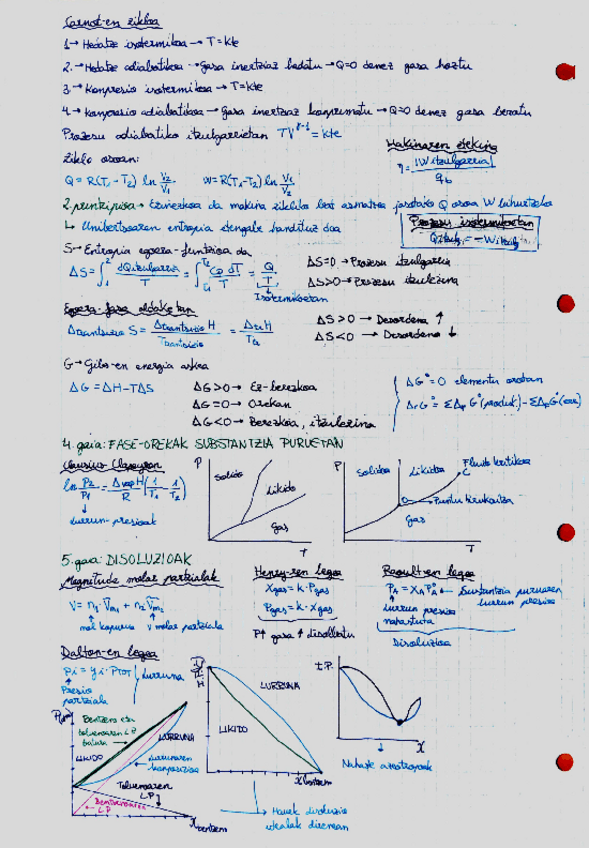 Carnot-en zikloa
1→ Hedatze isotermikoa → T=Kte
2.→ Hedatze adiabatikoa → Gasa inertziaz hedatu → Q=0 denez gasa hoztu
3→ Konpresio isotermikoa → T=Kte
4→ Konpresio adiabatikoa → Gasa inertziaz konprimatu → Q=0 denez gasa berotu
Prozesu adiabatiko itzulgarrietan TV^γ-1 = kte
Makinaren etekina
η = |W itzulgarria| / q_b
Ziklo osoan:
Q = R(T1-T2) ln V2/V1 W = R(T1-T2) ln V1/V2
2. printzipioa → Ezinezkoa da makina zikliko bat asmatzea jasotako Q osoa W bihurtzeko
↳ Unibertsoaren entropia etengabe handituz doa
Prozesu isotermikoetan
Qitzulg = -Witzulg
S → Entropia egoera-funtzioa da
ΔS = ∫1^2 dQitzulgarria / T = ∫T1^T2 Cp dT / T = Q / T
Isotermikoetan
ΔS=0 → Prozesu itzulgarria
ΔS>0 → Prozesu itzulezina
Egoera-fase aldaketan
Δtrantsizio S = Δtrantsizio H / Ttrantsizio
ΔS>0 → Desordena ↑
ΔS<0 → Desordena ↓
G → Gibbs-en energia askea
ΔG = ΔH-TΔS
ΔG>0 → Ez-berezkoa
ΔG=0 → Orekan
ΔG<0 → Berezkoa, itzulezina
ΔG°=0 elementu orotan
ΔrG° = ΣΔfG°(produk.) - ΣΔfG°(erre)
4. gaia: FASE-OREKAK SUBSTANTZIA PURUETAN
Clausius-Clapeyron
ln P2/P1 = ΔvapH/R (1/T1 - 1/T2)
Lurrun-presioak
P
Solido
Likido
Gas
T
P
Solidoa
Likidoa
Fluido kritikoa
C
Puntu hirukoitza
Gas
T
5. gaia: DISOLUZIOAK
Magnitude molar partzialak
V = n1·Vm1 + n2·Vm2
mol kopurua V molar partziala
Henry-ren legea
Xgas = k·Pgas
Pgas = k·xgas
P↑ gasa ↑ disolbatu
Raoult-en legea
PA = XA PA* → Substantzia puruaren lurrun presioa
Lurrun presioa nahastura
Disoluzioa
Dalton-en legea
pi = yi·PTOT
Lurruna
Presio partziala
Bentzeno eta toluenoaren L.P batura
LURRUNA
LIKIDO
Lurrunaren konposizioa
Toluenoaren L.P
Bentzenoaren L.P
Xbentzem
LURRUNA
LIKIDO
Xbentzem
Hauek disoluzio idealak direnean
t.P.
X
Nahaste azeotropoak